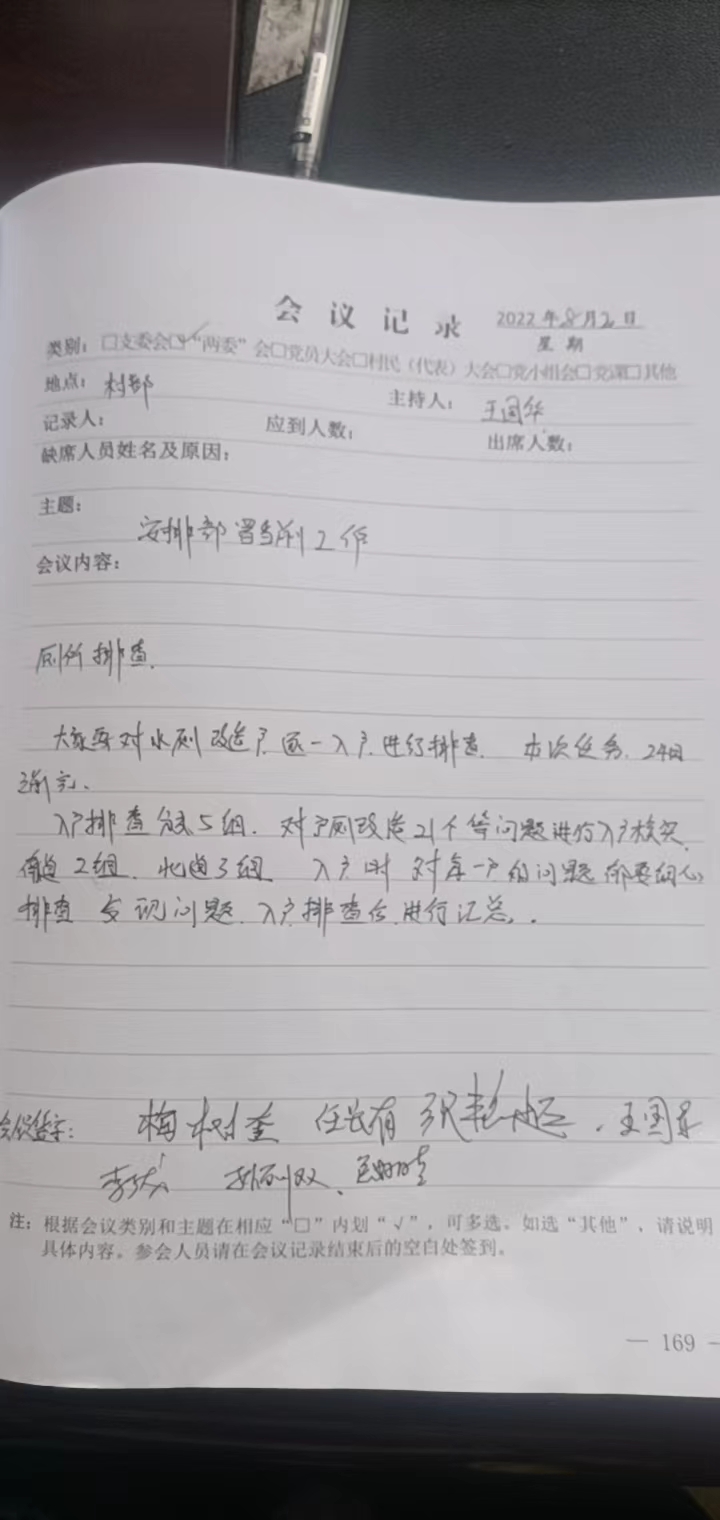 会议记录 2022年8月2日
星期
类别：□支委会☑“两委”会□党员大会□村民（代表）大会□党小组会□党课□其他
地点：村部 主持人：王国华
记录人： 应到人数： 出席人数：
缺席人员姓名及原因：
主题：
安排部署当前工作
会议内容：
厕所排查.
大家要对水厕改造户逐一入户进行排查. 本次任务. 24日
入户排查分为5组. 对户厕改造21个等问题进行入户核实.
南边2组. 北边3组 入户时 对每一户的问题都要细心
排查 发现问题. 入户排查后.进行汇总.
签字：
梅树奎 任长有 王国华
注：根据会议类别和主题在相应“□”内划“√”，可多选。如选“其他”，请说明
具体内容。参会人员请在会议记录结束后的空白处签到。
— 169 —